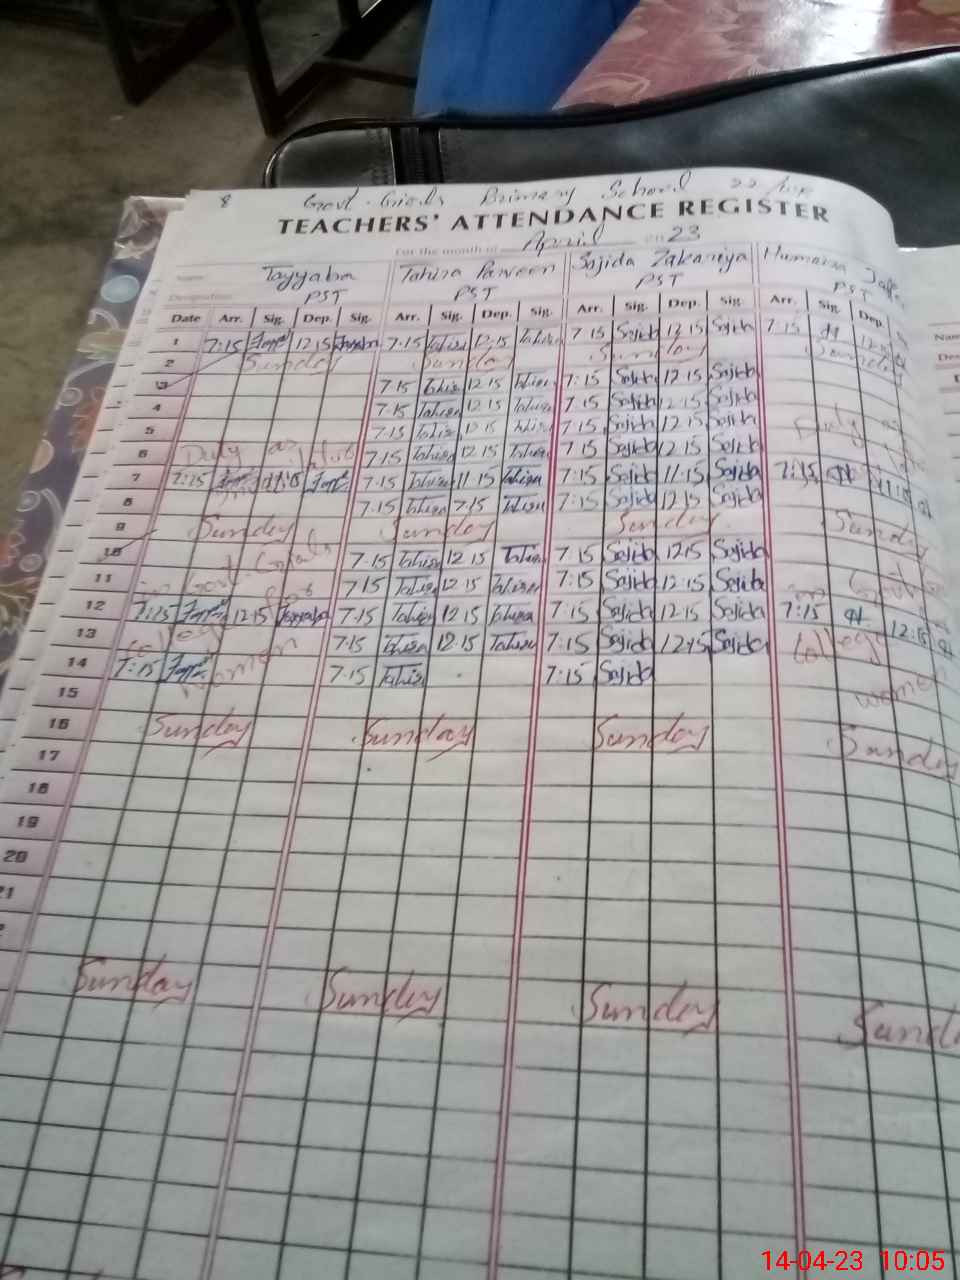 8 Govt. Girls Primary School 22
TEACHERS' ATTENDANCE REGISTER
For the month of April 23
Name Tayyaba Tahira Parveen Sajida Zakariya Humaira
Designation PST PST PST PST
Date Arr. Sig. Dep. Sig. Arr. Sig. Dep. Sig. Arr. Sig. Dep. Sig. Arr. Sig. Dep.
1 7:15 12 15 Tayyaba 7.15 Tahira 12.15 Tahira 7 15 Sajida 12 15 Sajida 7:15
2 Sunday Sunday Sunday Sunday
3 7.15 Tahira 12 15 Tahira 7:15 Sajida 12 15 Sajida
4 7.15 Tahira 12.15 Tahira 7:15 Sajida 12.15 Sajida
5 7.15 Tahira 12 15 Tahira 7.15 Sajida 12 15 Sajida Duty
6 Duty as 7.15 Tahira 12.15 Tahira 7 15 Sajida 12.15 Sajida
7 7:15 11:15 7.15 Tahira 11 15 Tahira 7:15 Sajida 11.15 Sajida 7:15 11 15
8 7.15 Tahira 7.15 Tahira 7:15 Sajida 12 15 Sajida
9 Sunday Sunday Sunday Sunday
10 Govt. 7.15 Tahira 12 15 Tahira 7 15 Sajida 12.15 Sajida
11 for 7.15 Tahira 12 15 Tahira 7:15 Sajida 12:15 Sajida
12 7:15 12 15 Tayyaba 7.15 Tahira 12.15 Tahira 7:15 Sajida 12.15 Sajida 7:15 12:15
13 College 7.15 Tahira 12.15 Tahira 7:15 Sajida 12:15 Sajida College
14 7:15 women 7.15 Tahira 7:15 Sajida
15 women
16 Sunday Sunday Sunday Sunday
17
18
19
20
21
Sunday Sunday Sunday
14-04-23 10:05